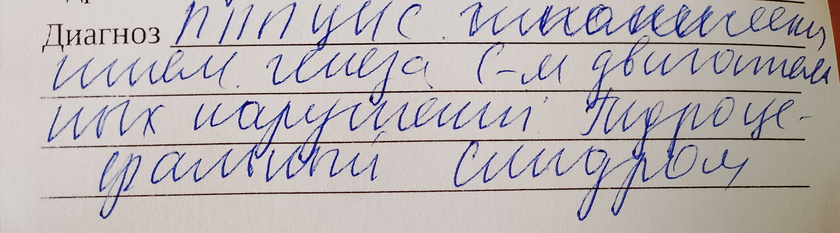 Диагноз ППП ЦНС гипоксически
ишем. генеза С-м двигатель
ных нарушений Гидроце-
фальный синдром